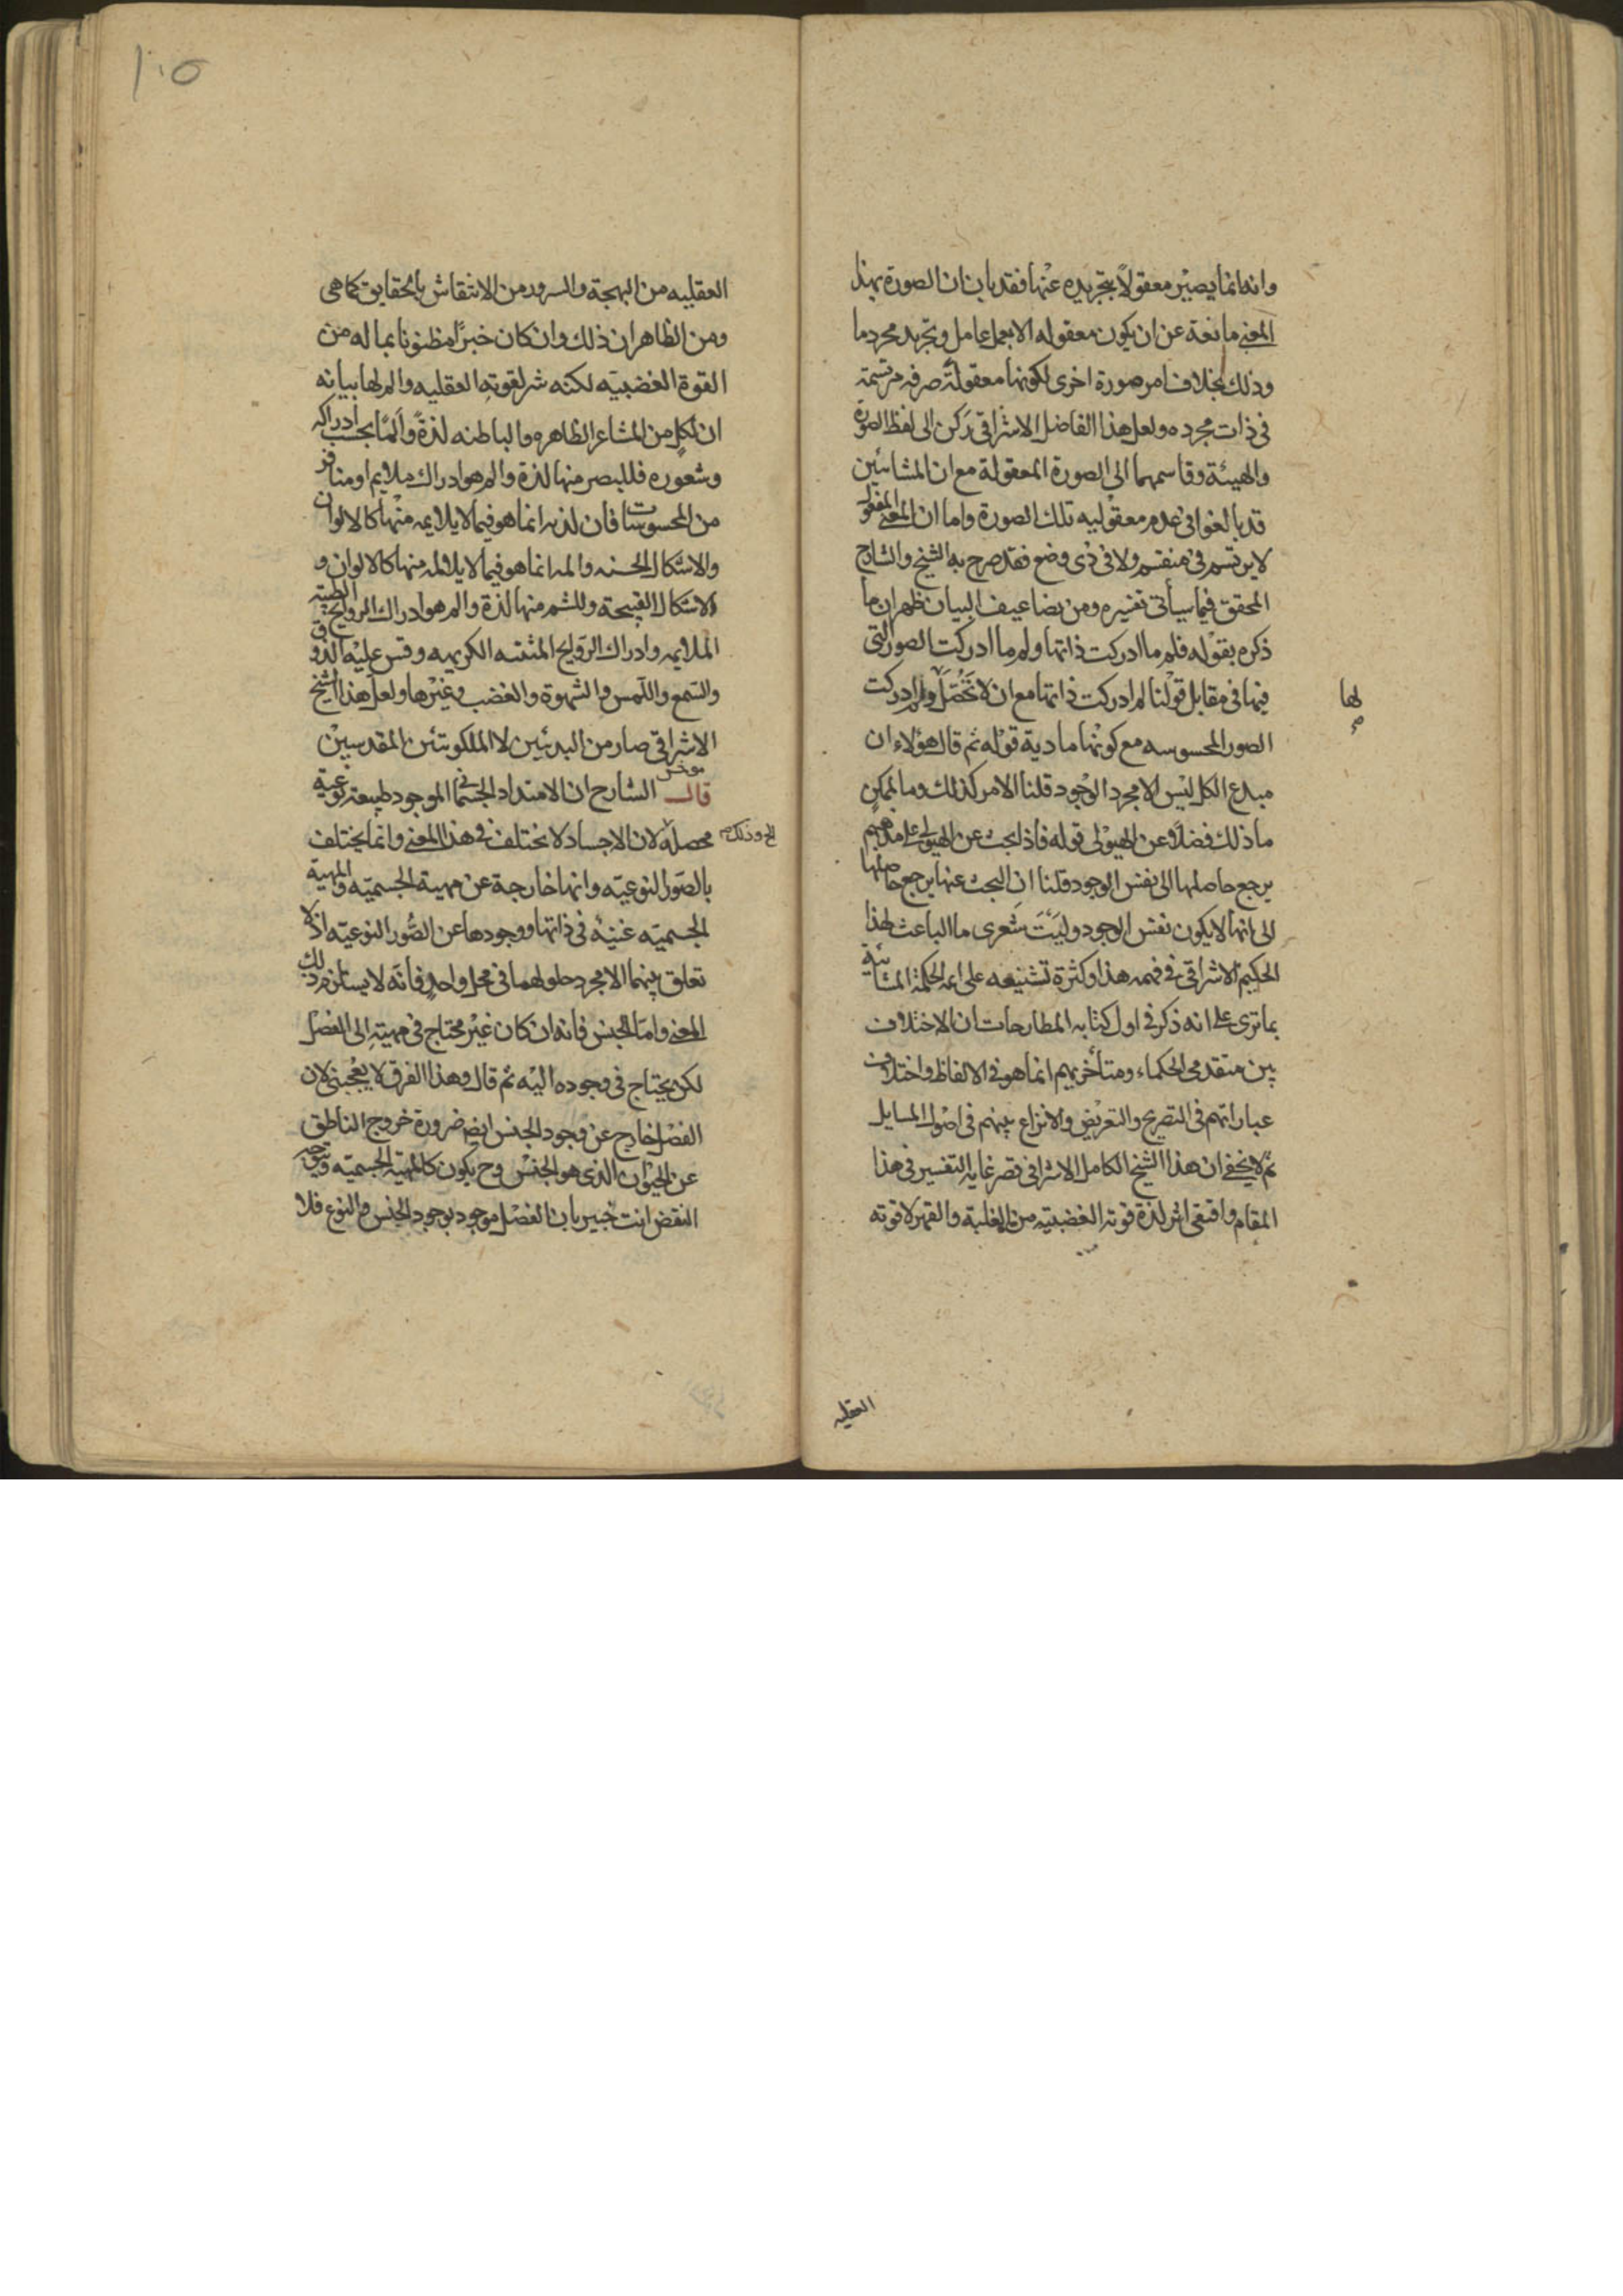 وانه انما يصير معقولاً بتجريده عنها فقد بان ان الصورة بهذا
المعنى مانعة عن ان يكون معقوله الا بعمل عامل وتجريد مجرد ما
وذلك بخلاف امر صورة اخرى لكونها معقولة صرفه مرتسمة
فى ذات مجرده ولعل هذا الفاضل الاشراقى ركن الى لفظ الصورة
والهيئة وقاسمهما الى الصورة المعقولة مع ان المشائين
قد بالغوا فى عدم معقوليه تلك الصورة واما ان المعنى المعقول
لا يرتسم فى منقسم ولا فى ذى وضع فقد صرح به الشيخ والشارح
المحقق فيما سيأتى تفسيره ومن تضاعيف البيان ظهر ان ما
ذكره بقوله فلم ما ادركت ذاتها ولم ما ادركت الصور التى
فيها فى مقابل قولنا لم ادركت ذاتها مع ان لا تحصل ولم ادركت
لها
الصور المحسوسه مع كونها مادية قوله ثم قال هؤلاء ان
مبدع الكل ليس الا مجرد الوجود قلنا الامر كذلك وما لممكن
ما ذلك فضلاً عن الهيولى قوله فاذا بحث عن الهيولى على مذهبهم
يرجع حاصلها الى نفس الوجود قلنا ان البحث عنها يرجع حاصلها
الى انها لا يكون نفس الوجود وليت شعرى ما الباعث لهذا
الحكيم الاشراقى فى فهمه هذا وكثرة تشنيعه على ائمة الحكمة المشائية
بما ترى على انه ذكر فى اول كتابه المطارحات ان الاختلاف
بين متقدمى الحكماء ومتأخريهم انما هو فى الالفاظ واختلاف
عباراتهم فى التصريح والتعريض والا نزاع بينهم فى اصول المسايل
ثم لا يخفى ان هذا الشيخ الكامل الاشراقى قصر غاية التفسير فى هذا
المقام واقتفى اثر لذة قوته الغضبيته من الغلبة والقهر لا قوته
العقليه
١٠٥
العقليه من البهجة والسرور من الانتقاش بالحقايق كما هى
ومن الظاهر ان ذلك وان كان خيراً مظنونا بماله من
القوة الغضبيته لكنه شر لقوته العقليه والم لها بيانه
ان لكل من المشاعر الظاهره والباطنه لذةً وألمًا بحسب ادراكه
وشعوره فللبصر منها لذة والم هو ادراك ملايم او منافر
من المحسوسات فان لذته انما هو فيما لا يلايمه منها كالالوان
والاشكال الحسنه والمه انما هو فيما لا يلائمه منها كالالوان و
الاشكال القبيحة وللشم منها لذة والم هو ادراك الروايح الطيبه
الملايمه وادراك الروايح المنتنه الكريهه وقس عليه الذوق
والسمع واللمس والشهوة والغضب وغيرها ولعل هذا الشيخ
الاشراقى صار من البدئيين لا الملكوتئين المقدسين
قال الشارح ان الامتداد الجسمانى الموجود طبيعته نوعية
محصلة لان الاجساد لا تختلف فى هذا المعنى وانما يختلف
الخ وذلك
بالصور النوعيه وانها خارجة عن مهية الجسميه والمهية
الجسميه غنية فى ذاتها ووجودها عن الصُّور النوعيه اذ لا
تعلق بينهما الا مجرد حلولهما فى محل واحد فانه لا يستلزم ذلك
المعنى واما الجنس فانه ان كان غير محتاج فى مهيته الى الفصل
لكن يحتاج فى وجوده اليه ثم قال وهذا الفرق لا يعجبنى لان
الفصل خارج عن وجود الجنس ايضا ضرورة خروج الناطق
عن الحيوان الذى هو الجنس وح يكون كالمهية الجسميه ويتوجه
النقض انت خبير بان الفصل موجود بوجود الجنس والنوع فلا